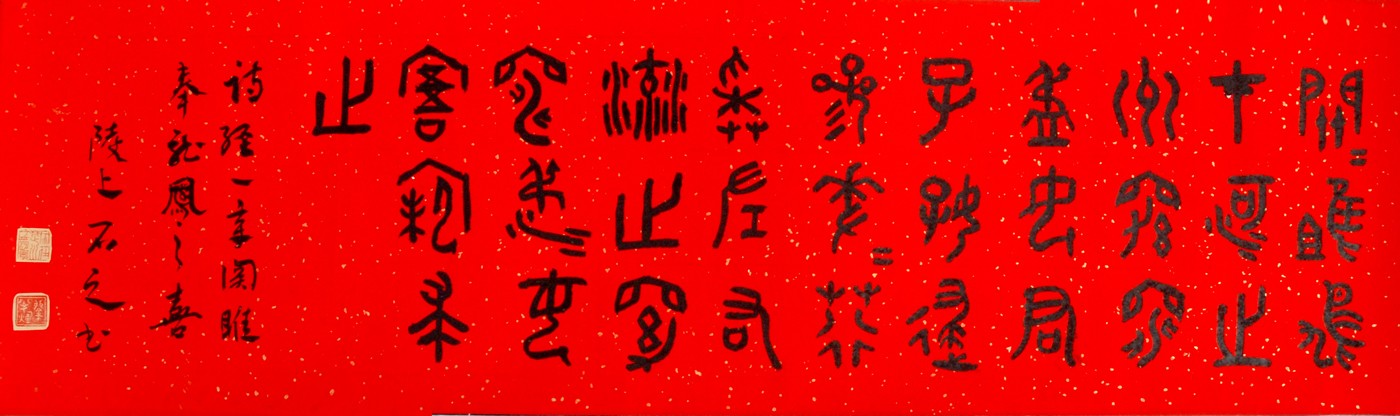 關=雎鳩
才河之
州窈窕
淑女君
子好逑
參差=荇
菜左右
流之窈
窕淑=女
寤寐求
之
诗经一章関雎
奉龙鳳之喜
陵上石之书